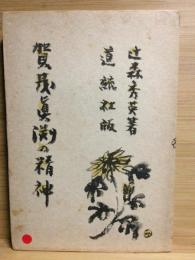 辻森秀英著
道統社版
賀茂真淵の精神